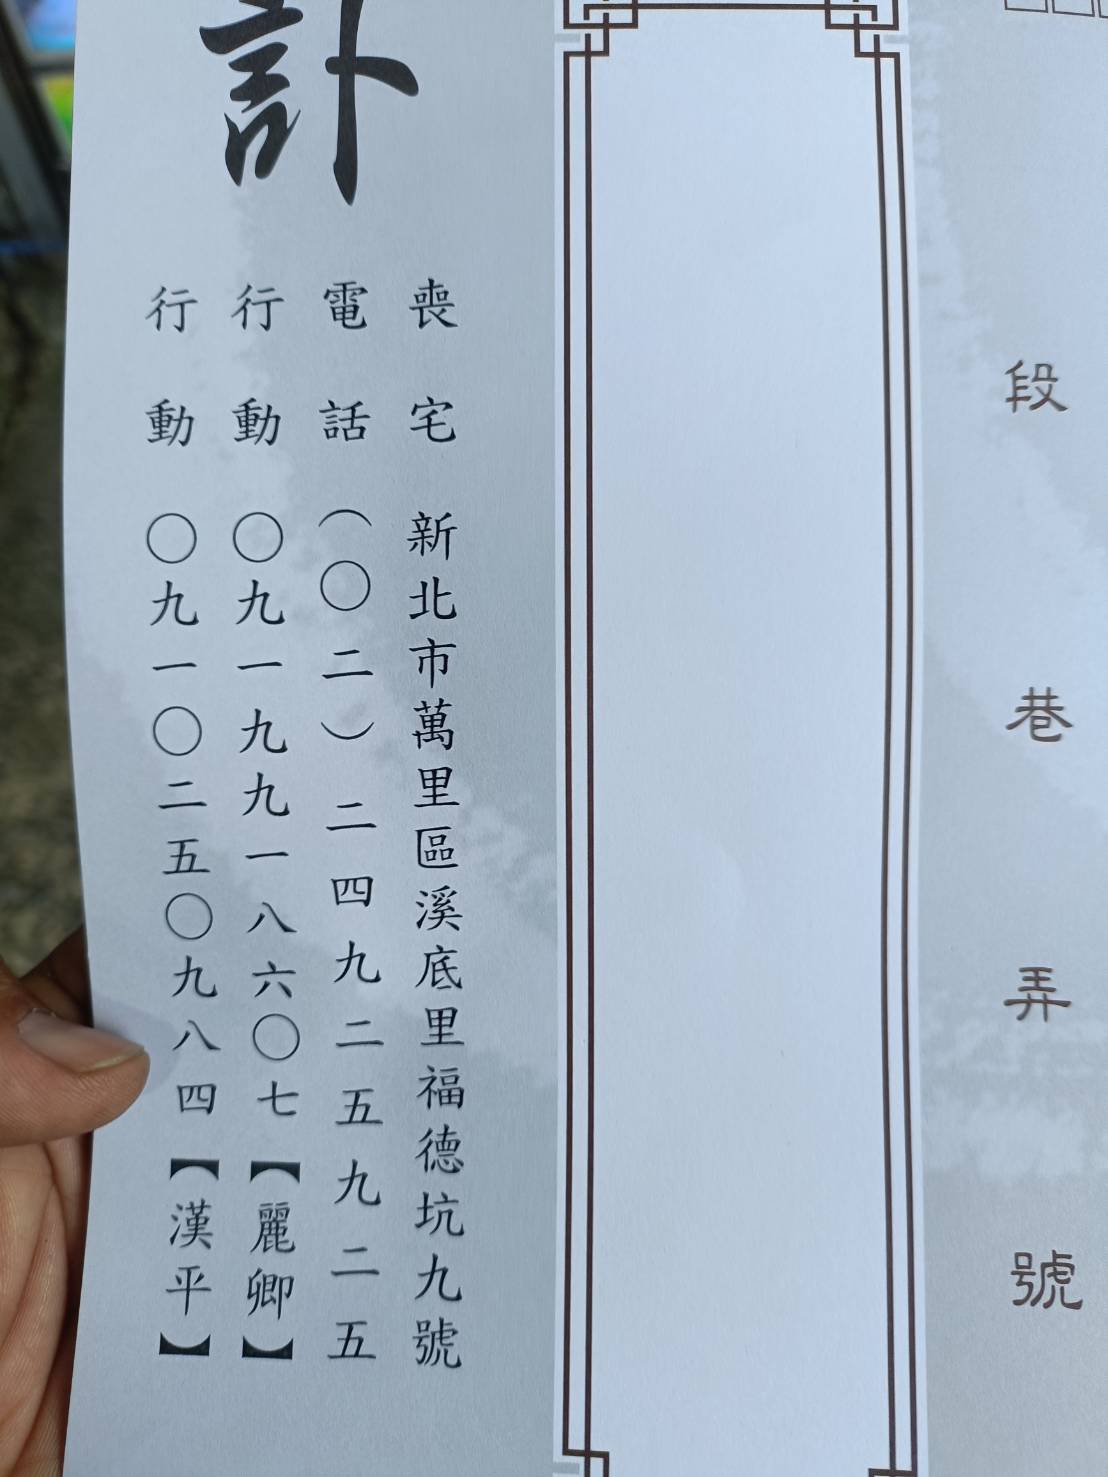 段 巷 弄 號
訃
喪宅 新北市萬里區溪底里福德坑九號
電話 (〇二)二四九二五九二五
行動 〇九一九九一八六〇七【麗卿】
行動 〇九一〇二五〇九八四【漢平】